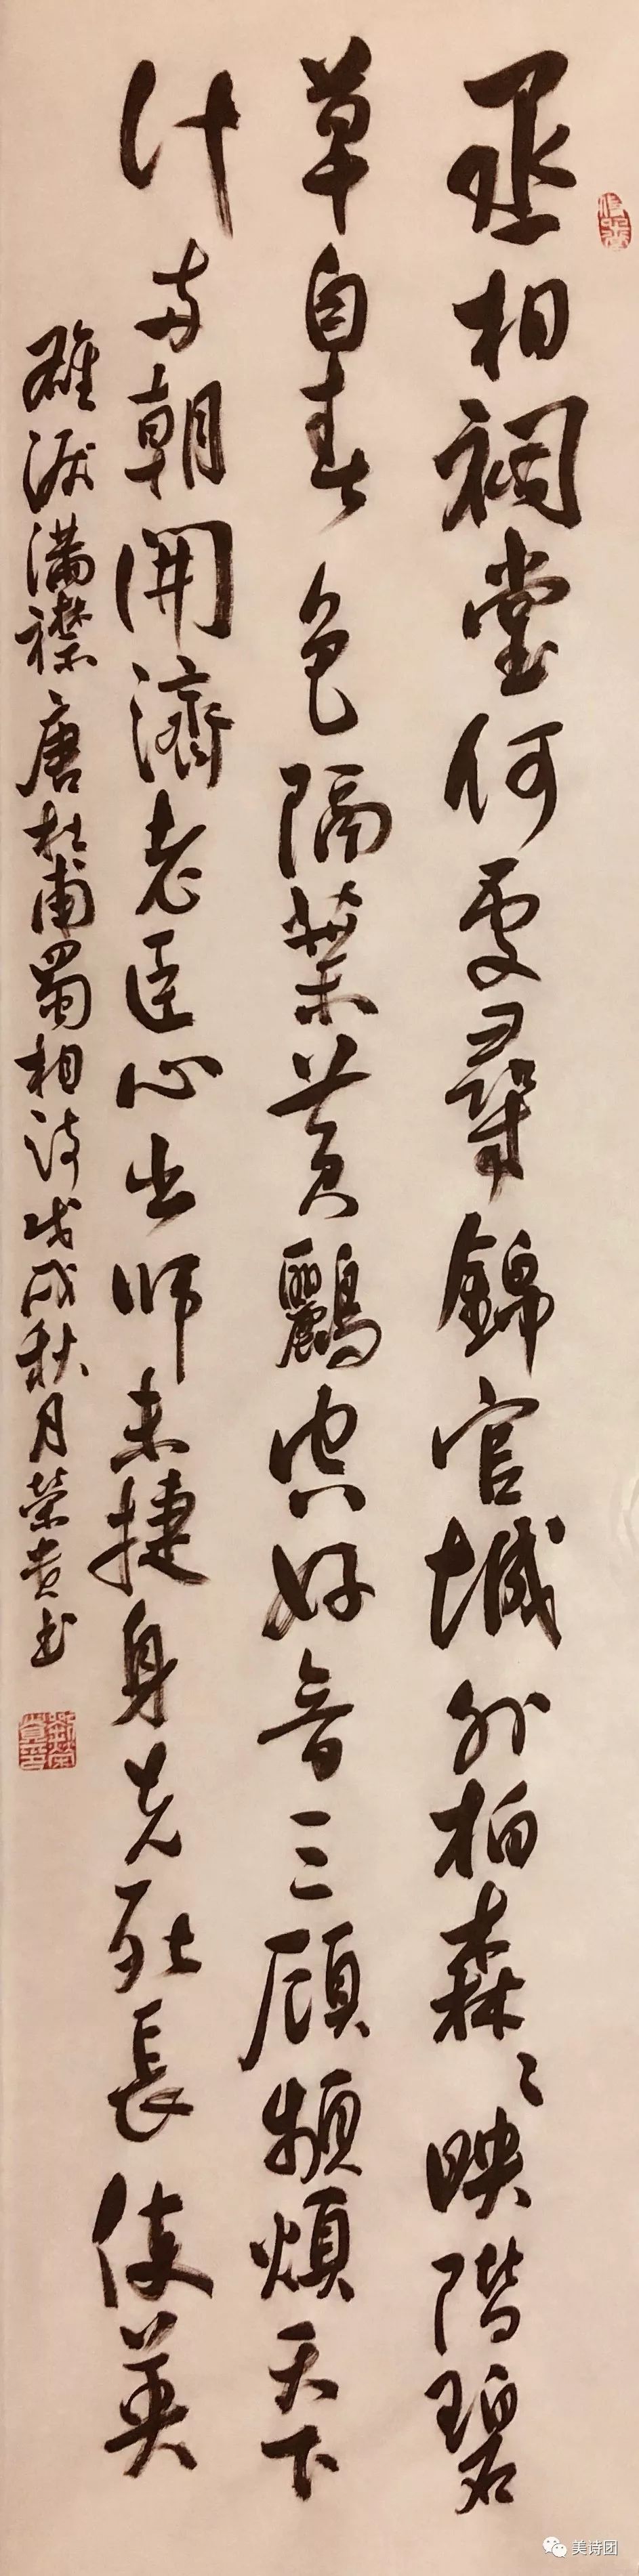 丞相祠堂何處尋錦官城外柏森〻映階碧
草自春色隔葉黄鸝空好音三顧頻煩天下
计两朝開濟老臣心出師未捷身先死長使英
雄淚滿襟唐杜甫蜀相诗戊戌秋月榮貴书
美诗团